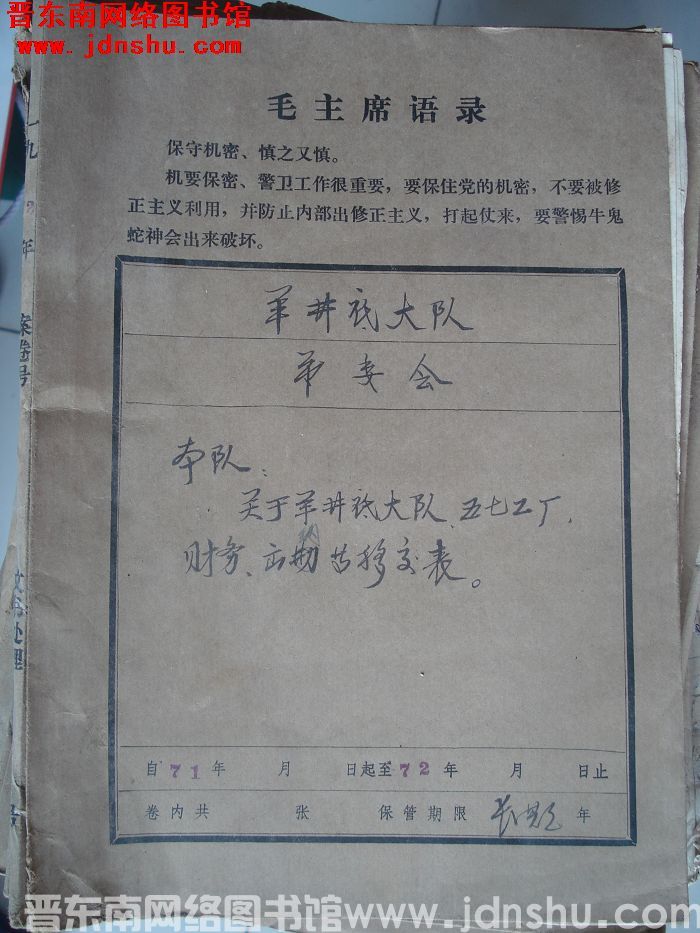 晋东南网络图书馆
www.jdnshu.com
毛主席语录
保守机密、慎之又慎。
机要保密、警卫工作很重要，要保住党的机密，不要被修
正主义利用，并防止内部出修正主义，打起仗来，要警惕牛鬼
蛇神会出来破坏。
羊井底大队
革委会
本队：
关于羊井底大队、五七工厂、
财务、移交表。
自71年 月 日起至72年 月 日止
卷内共 张 保管期限 长期 年
年
案卷号
文书处理
号
晋东南网络图书馆www.jdnshu.com